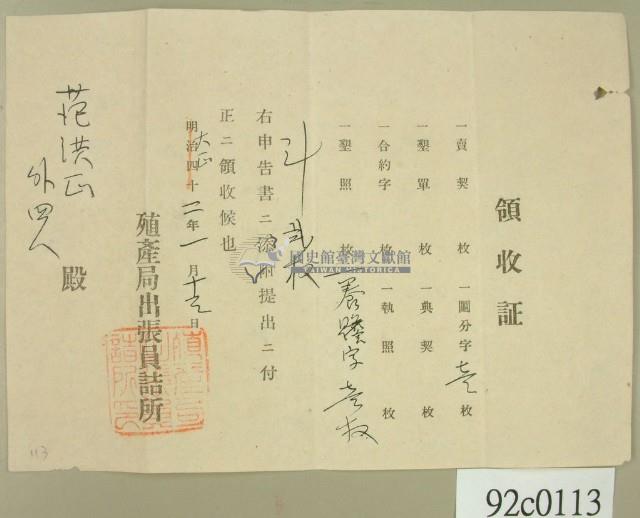 領收証
一賣契 枚 一圖分字 壹 枚
一墾單 枚 一典契 枚
一合約字 枚 一執照 枚
一墾照 枚 一養贍字 壹枚
計 弐枚
右申告書ニ添附提出ニ付
正ニ領收候也
明治四十
大正二年一月十六日
殖產局出張員詰所
范洪正
外四人
殿
國史館臺灣文獻館
TAIWAN HISTORICA
113
92c0113